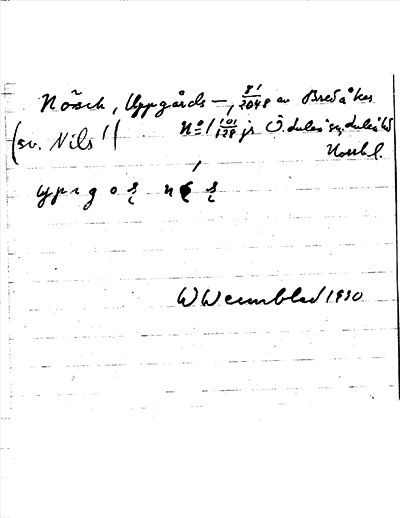 Nösch, Uppgårds –, 81/2048 av Bredåker
(sv. Nils!) No 1 101/128 jr Ö. Luleå sn, Luleå hd
Norrb l.
W Wennblad 1930